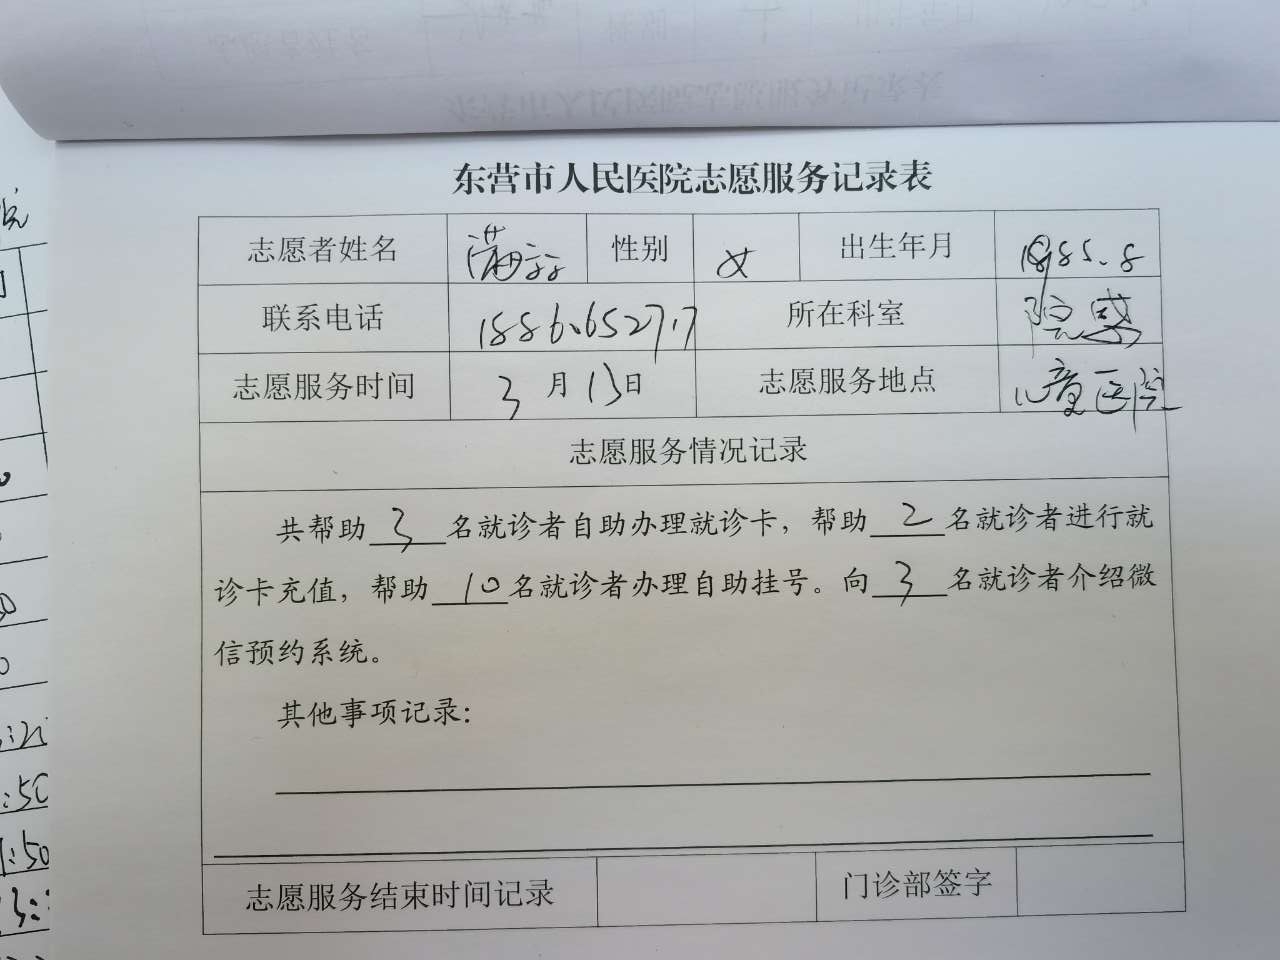 东营市人民医院志愿服务记录表
志愿者姓名 满 性别 女 出生年月 1985.8
联系电话 所在科室 院感
志愿服务时间 3月13日 志愿服务地点 儿童医院
志愿服务情况记录
共帮助3名就诊者自助办理就诊卡，帮助2名就诊者进行就
诊卡充值，帮助10名就诊者办理自助挂号。向3名就诊者介绍微
信预约系统。
其他事项记录：
志愿服务结束时间记录 门诊部签字
院
:50
:50